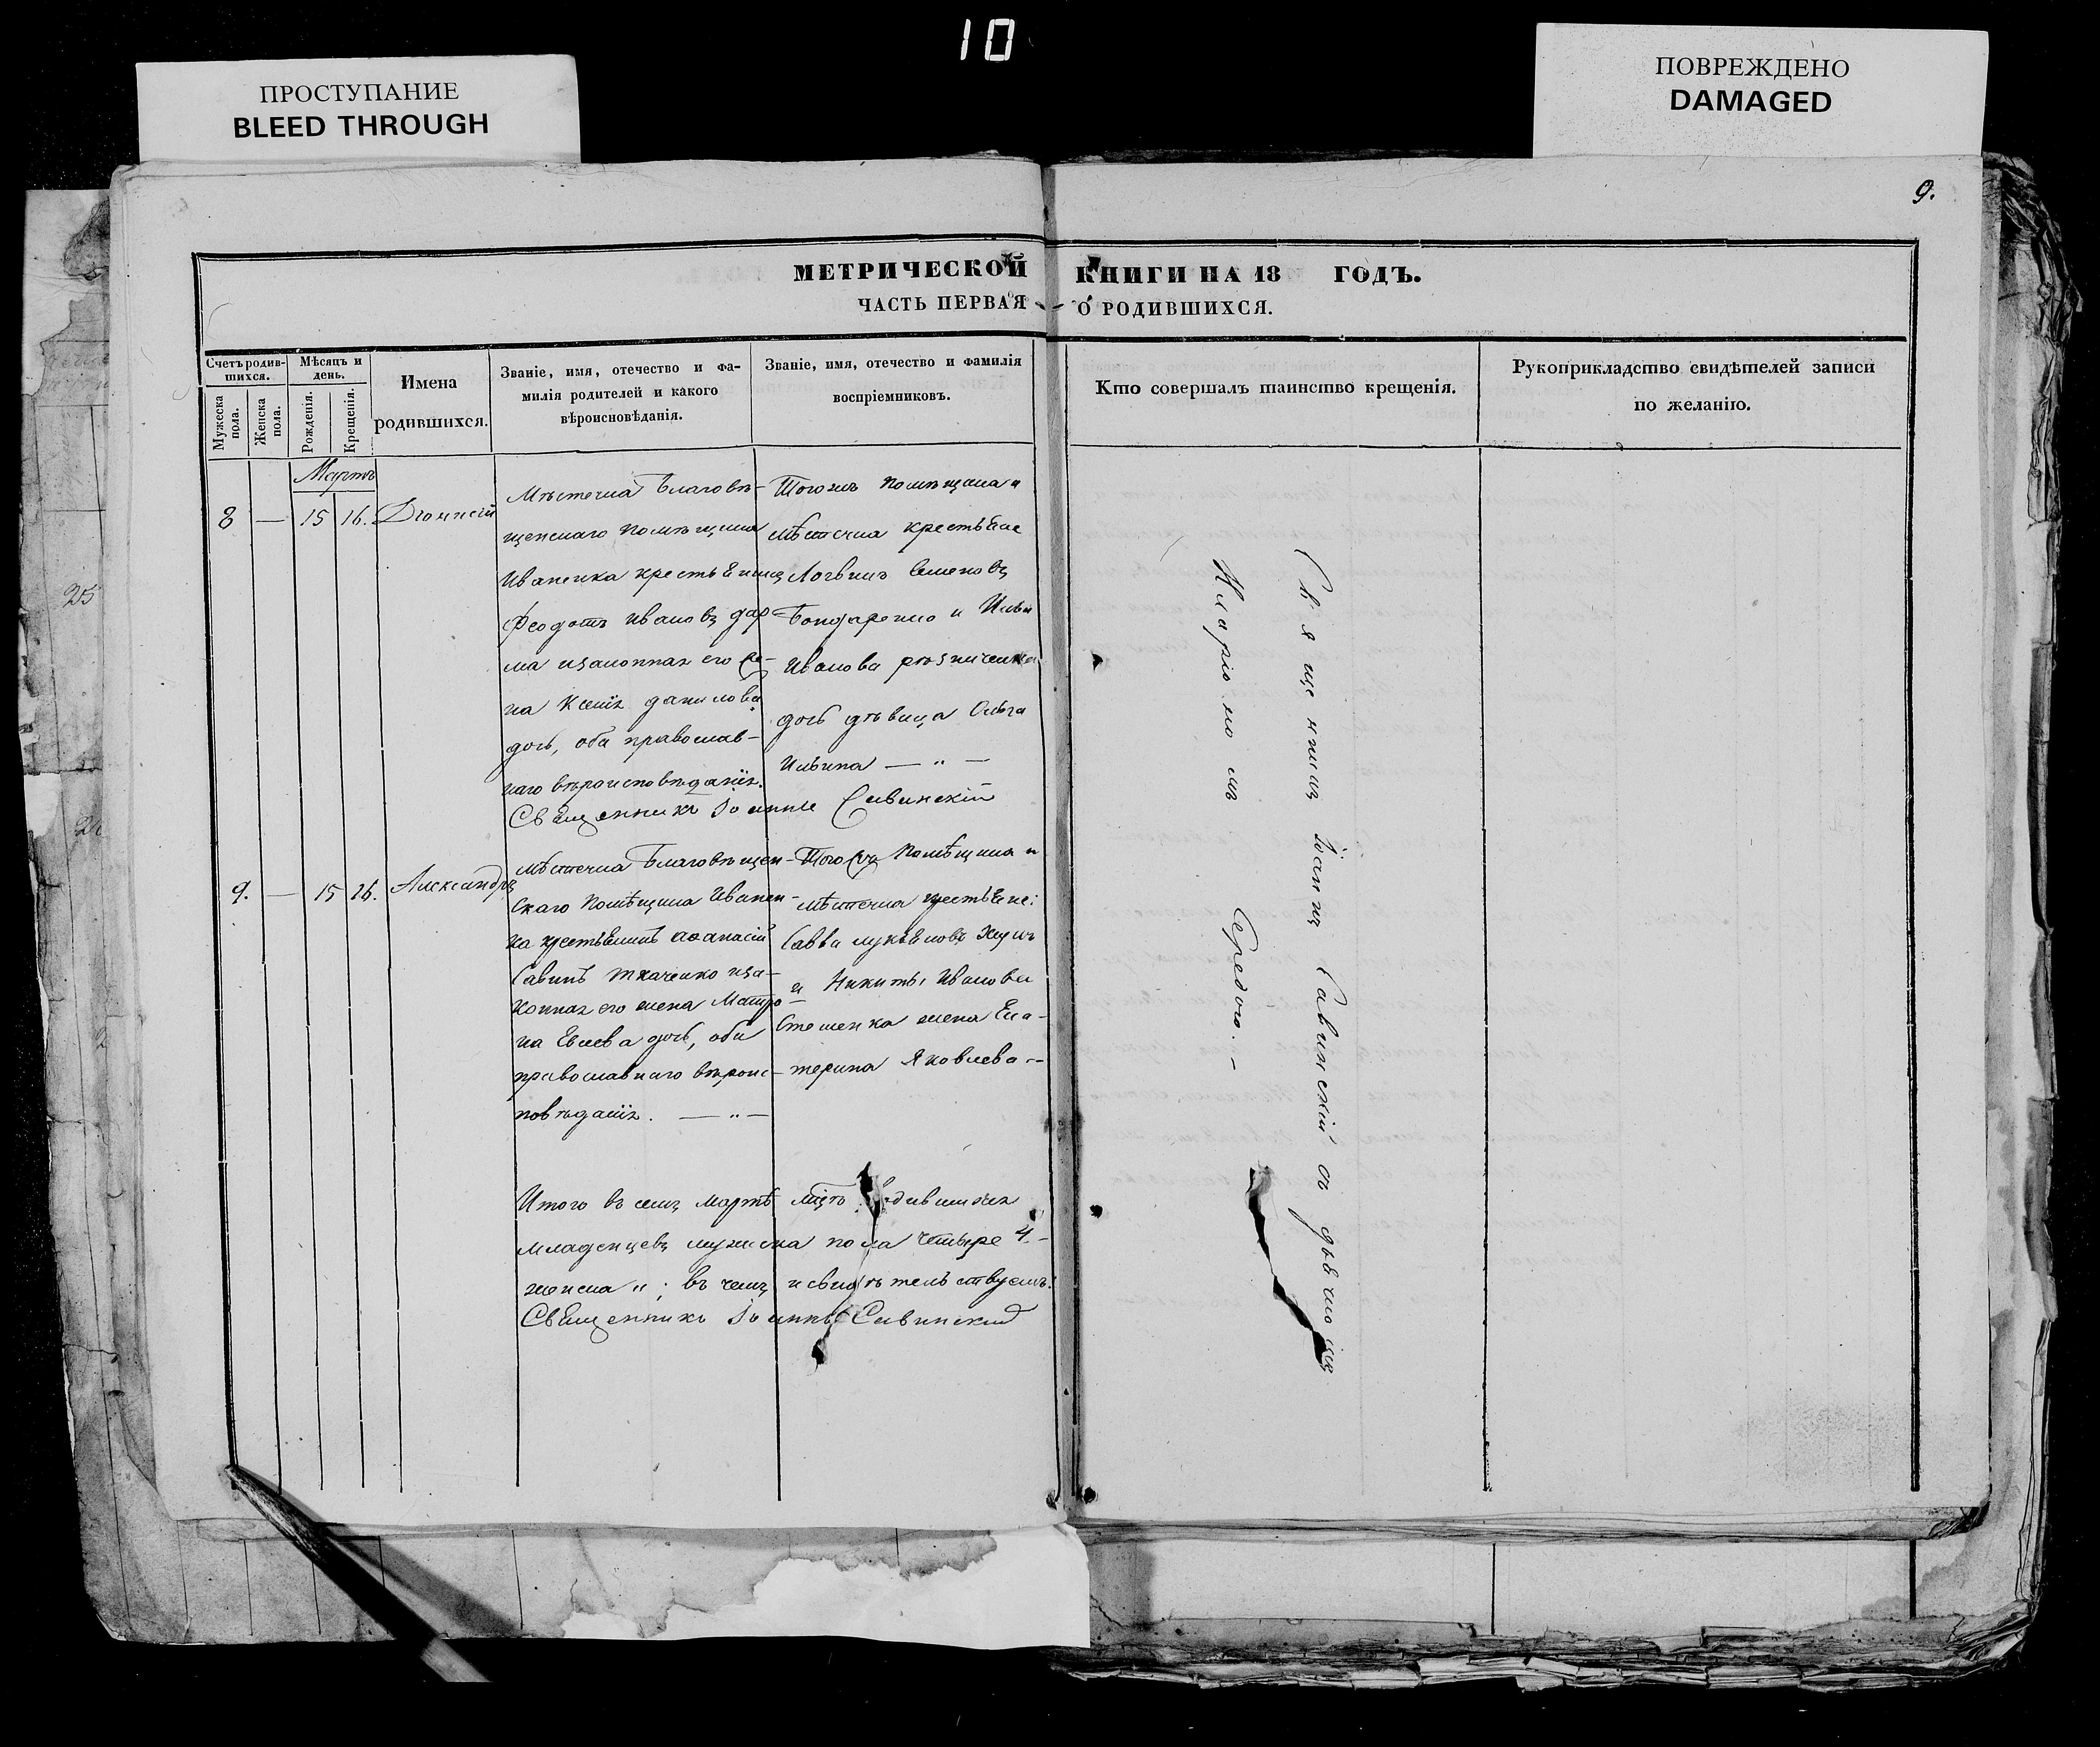 10
ПРОСТУПАНИЕ
BLEED THROUGH
ПОВРЕЖДЕНО
DAMAGED
9.
МЕТРИЧЕСКОЙ КНИГИ НА 18 ГОДЪ.
ЧАСТЬ ПЕРВАЯ О РОДИВШИХСЯ.
Счетъ родив-
шихся.
Мужеска
пола.
Женска
пола.
Мѣсяцъ и
день.
Рожденія.
Крещенія.
Имена
родившихся.
Званіе, имя, отечество и фа-
милія родителей и какого
вѣроисновѣданія.
Званіе, имя, отечество и фамилія
воспріемниковъ.
Кто совершалъ таинство крещенія.
Рукоприкладство свидѣтелей записи
по желанію.
Мартъ
8 — 15 16. Діонисій
Мѣстечка Благовѣ-
щенскаго помѣщика
Иваненка крестьянинъ
Феодотъ Ивановъ
законная его
на Ксенія Данилова
дочь, оба православ-
наго вѣроисповѣданія.
Тогожъ помѣщика и
мѣстечка крестьяне
Логвинъ Семеновъ
Бондаренко и Ильи
Иванова
дочь дѣвица Ольга
Ильина — " —
Священникъ Іоаннъ Савинскій
9. — 15 16. Александръ
Мѣстечка Благовѣщен-
скаго Помѣщика Иванен-
ка крестьянинъ Аѳанасій
Савинъ Ткаченко иза-
конная его жена Матро-
на Евсева дочь, оба
православнаго вѣроис-
повѣданія. — " —
Того Помѣщика и
мѣстечка крестьяне:
Савва Лукьяновъ
и Никиты Иванова
Стешенка жена Ека-
терина Яковлева —
Итого въ семъ Мартѣ мѣсяцѣ родившихся
младенцевъ мужска пола четыре 4.-
женска "; въ чемъ и свидѣтельствуемъ:
Священникъ Іоаннъ Савинскій
Священникъ Іоаннъ Савинскій съ дьячкомъ
Иларіономъ Середою. —